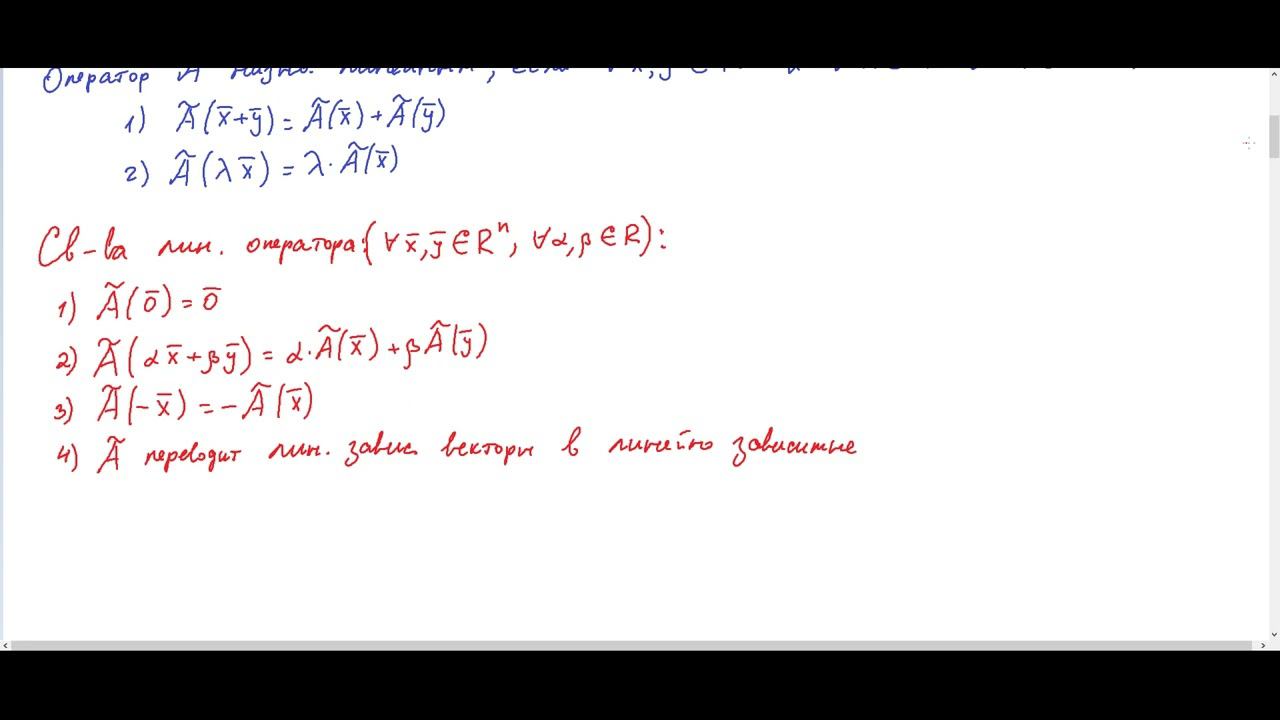 Оператор Ã назыв. линейным, если ∀ x̄, ȳ ∈
1) Ã(x̄+ȳ) = Ã(x̄) + Ã(ȳ)
2) Ã(λx̄) = λ·Ã(x̄)
Св-ва лин. оператора: (∀ x̄, ȳ ∈ Rⁿ, ∀ α, β ∈ R):
1) Ã(0̄) = 0̄
2) Ã(αx̄+βȳ) = α·Ã(x̄) + βÃ(ȳ)
3) Ã(-x̄) = -Ã(x̄)
4) Ã переводит лин. завис. векторы в линейно зависимые